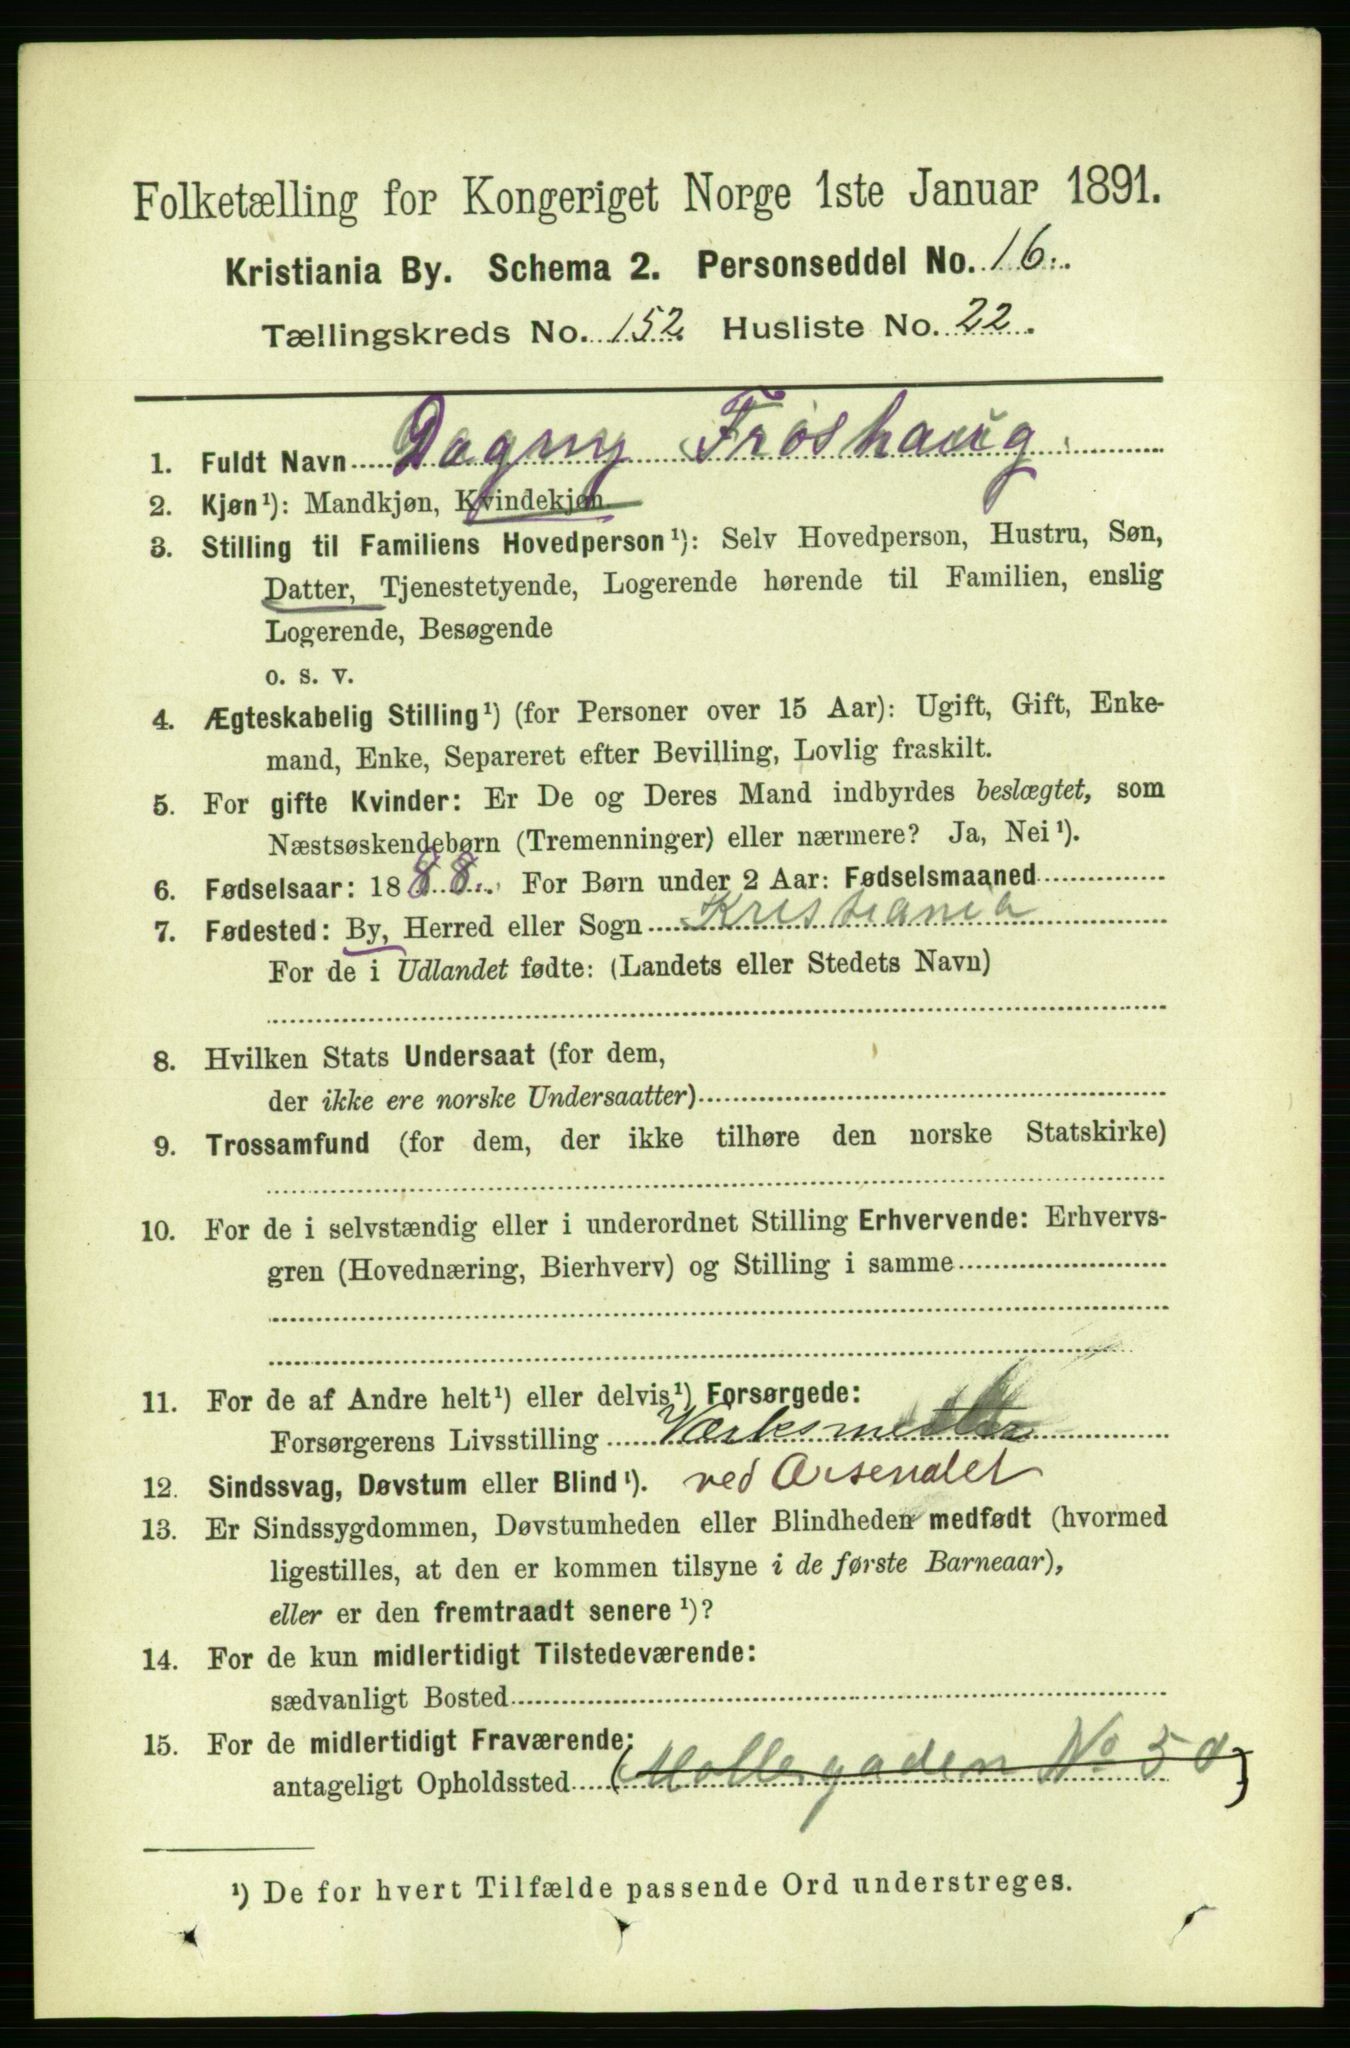 Folketælling for Kongeriget Norge 1ste Januar 1891.
Kristiania By. Schema 2. Personseddel No. 16.
Tællingskreds No. 152 Husliste No. 22.
1. Fuldt Navn Dagny Frøshaug
2. Kjøn¹): Mandkjøn, Kvindekjøn.
3. Stilling til Familiens Hovedperson¹): Selv Hovedperson, Hustru, Søn,
Datter, Tjenestetyende, Logerende hørende til Familien, enslig
Logerende, Besøgende
o. s. v.
4. Ægteskabelig Stilling¹) (for Personer over 15 Aar): Ugift, Gift, Enke-
mand, Enke, Separeret efter Bevilling, Lovlig fraskilt.
5. For gifte Kvinder: Er De og Deres Mand indbyrdes beslægtet, som
Næstsøskendebørn (Tremenninger) eller nærmere? Ja, Nei¹).
6. Fødselsaar: 1888. For Børn under 2 Aar: Fødselsmaaned
7. Fødested: By, Herred eller Sogn Kristiania
For de i Udlandet fødte: (Landets eller Stedets Navn)
8. Hvilken Stats Undersaat (for dem,
der ikke ere norske Undersaatter)
9. Trossamfund (for dem, der ikke tilhøre den norske Statskirke)
10. For de i selvstændig eller i underordnet Stilling Erhvervende: Erhvervs-
gren (Hovednæring, Bierhverv) og Stilling i samme
11. For de af Andre helt¹) eller delvis¹) Forsørgede:
Forsørgerens Livsstilling Værksmester
12. Sindssvag, Døvstum eller Blind¹). ved Arsenalet
13. Er Sindssygdommen, Døvstumheden eller Blindheden medfødt (hvormed
ligestilles, at den er kommen tilsyne i de første Barneaar),
eller er den fremtraadt senere¹)?
14. For de kun midlertidigt Tilstedeværende:
sædvanligt Bosted
15. For de midlertidigt Fraværende:
antageligt Opholdssted (Mollergaden No 50)
¹) De for hvert Tilfælde passende Ord understreges.